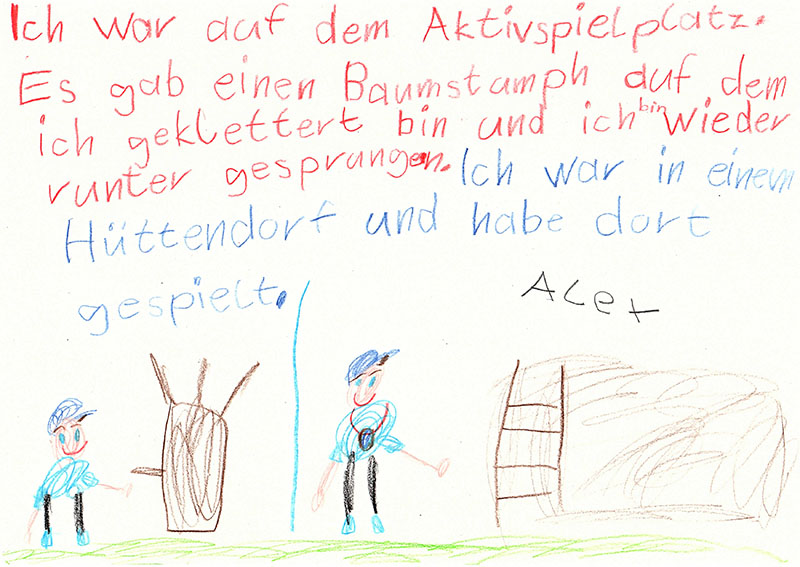 Ich war auf dem Aktivspielplatz.
Es gab einen Baumstamph auf dem
ich geklettert bin und ich bin wieder
runter gesprungen. Ich war in einem
Hüttendorf und habe dort
gespielt.
Alex